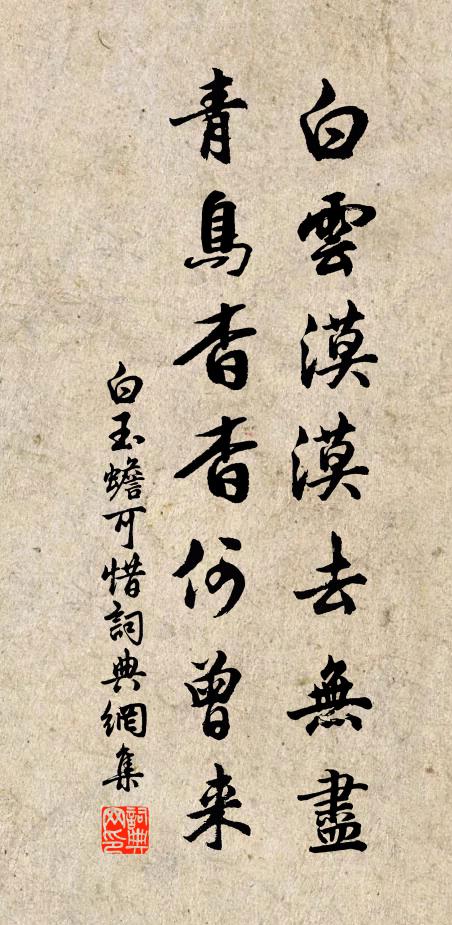 白雲漠漠去無盡
青鳥杳杳何曾来
白玉蟾可惜詞典網集
詞典網印